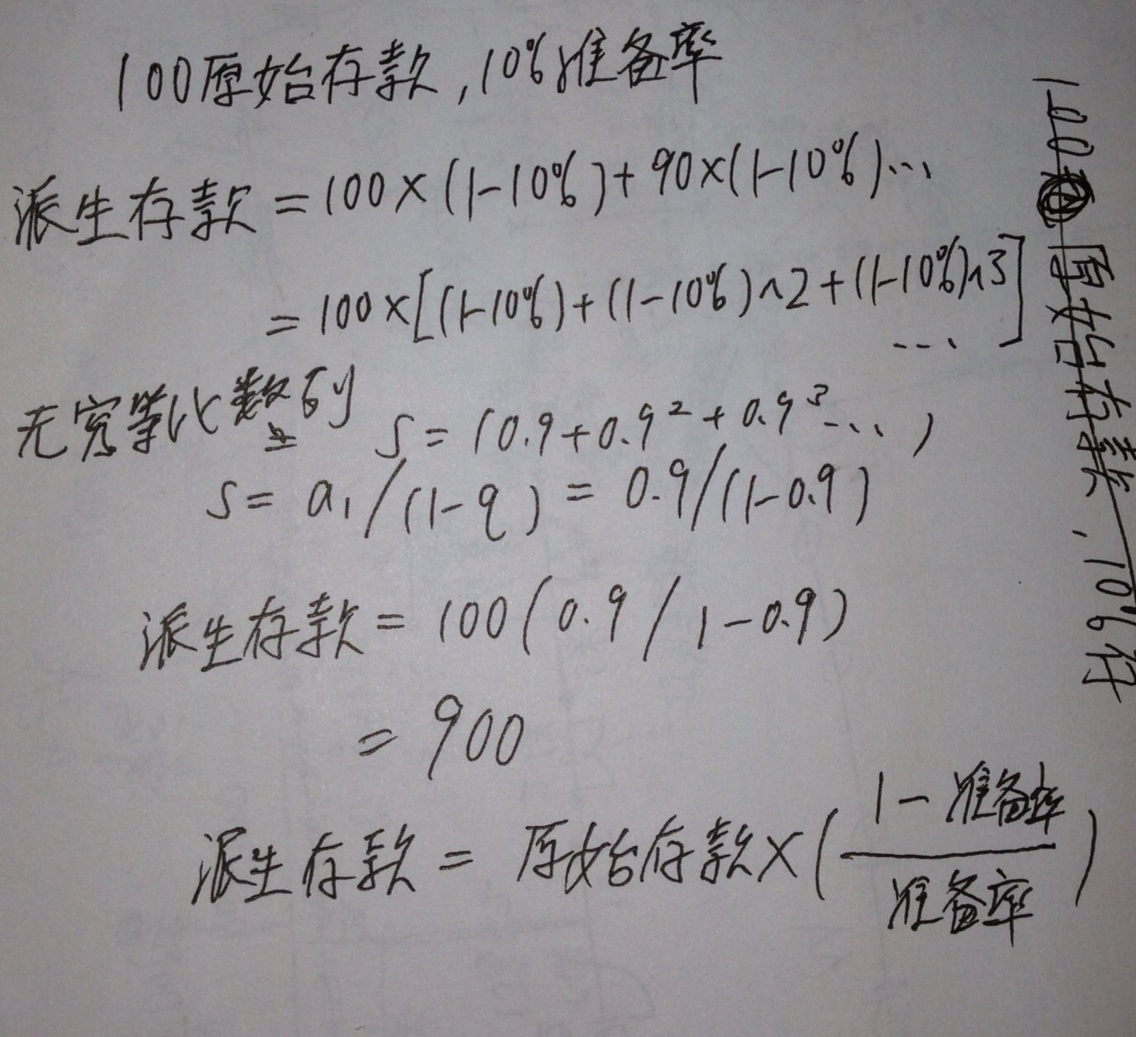 100原始存款,10%准备率
派生存款=100×(1-10%)+90×(1-10%)…
=100×[(1-10%)+(1-10%)^2+(1-10%)^3…]
无穷等比数列 S=(0.9+0.9²+0.9³…)
S=a₁/(1-q)=0.9/(1-0.9)
派生存款=100(0.9/1-0.9)
=900
派生存款=原始存款×(1-准备率/准备率)
100原始存款,10%存